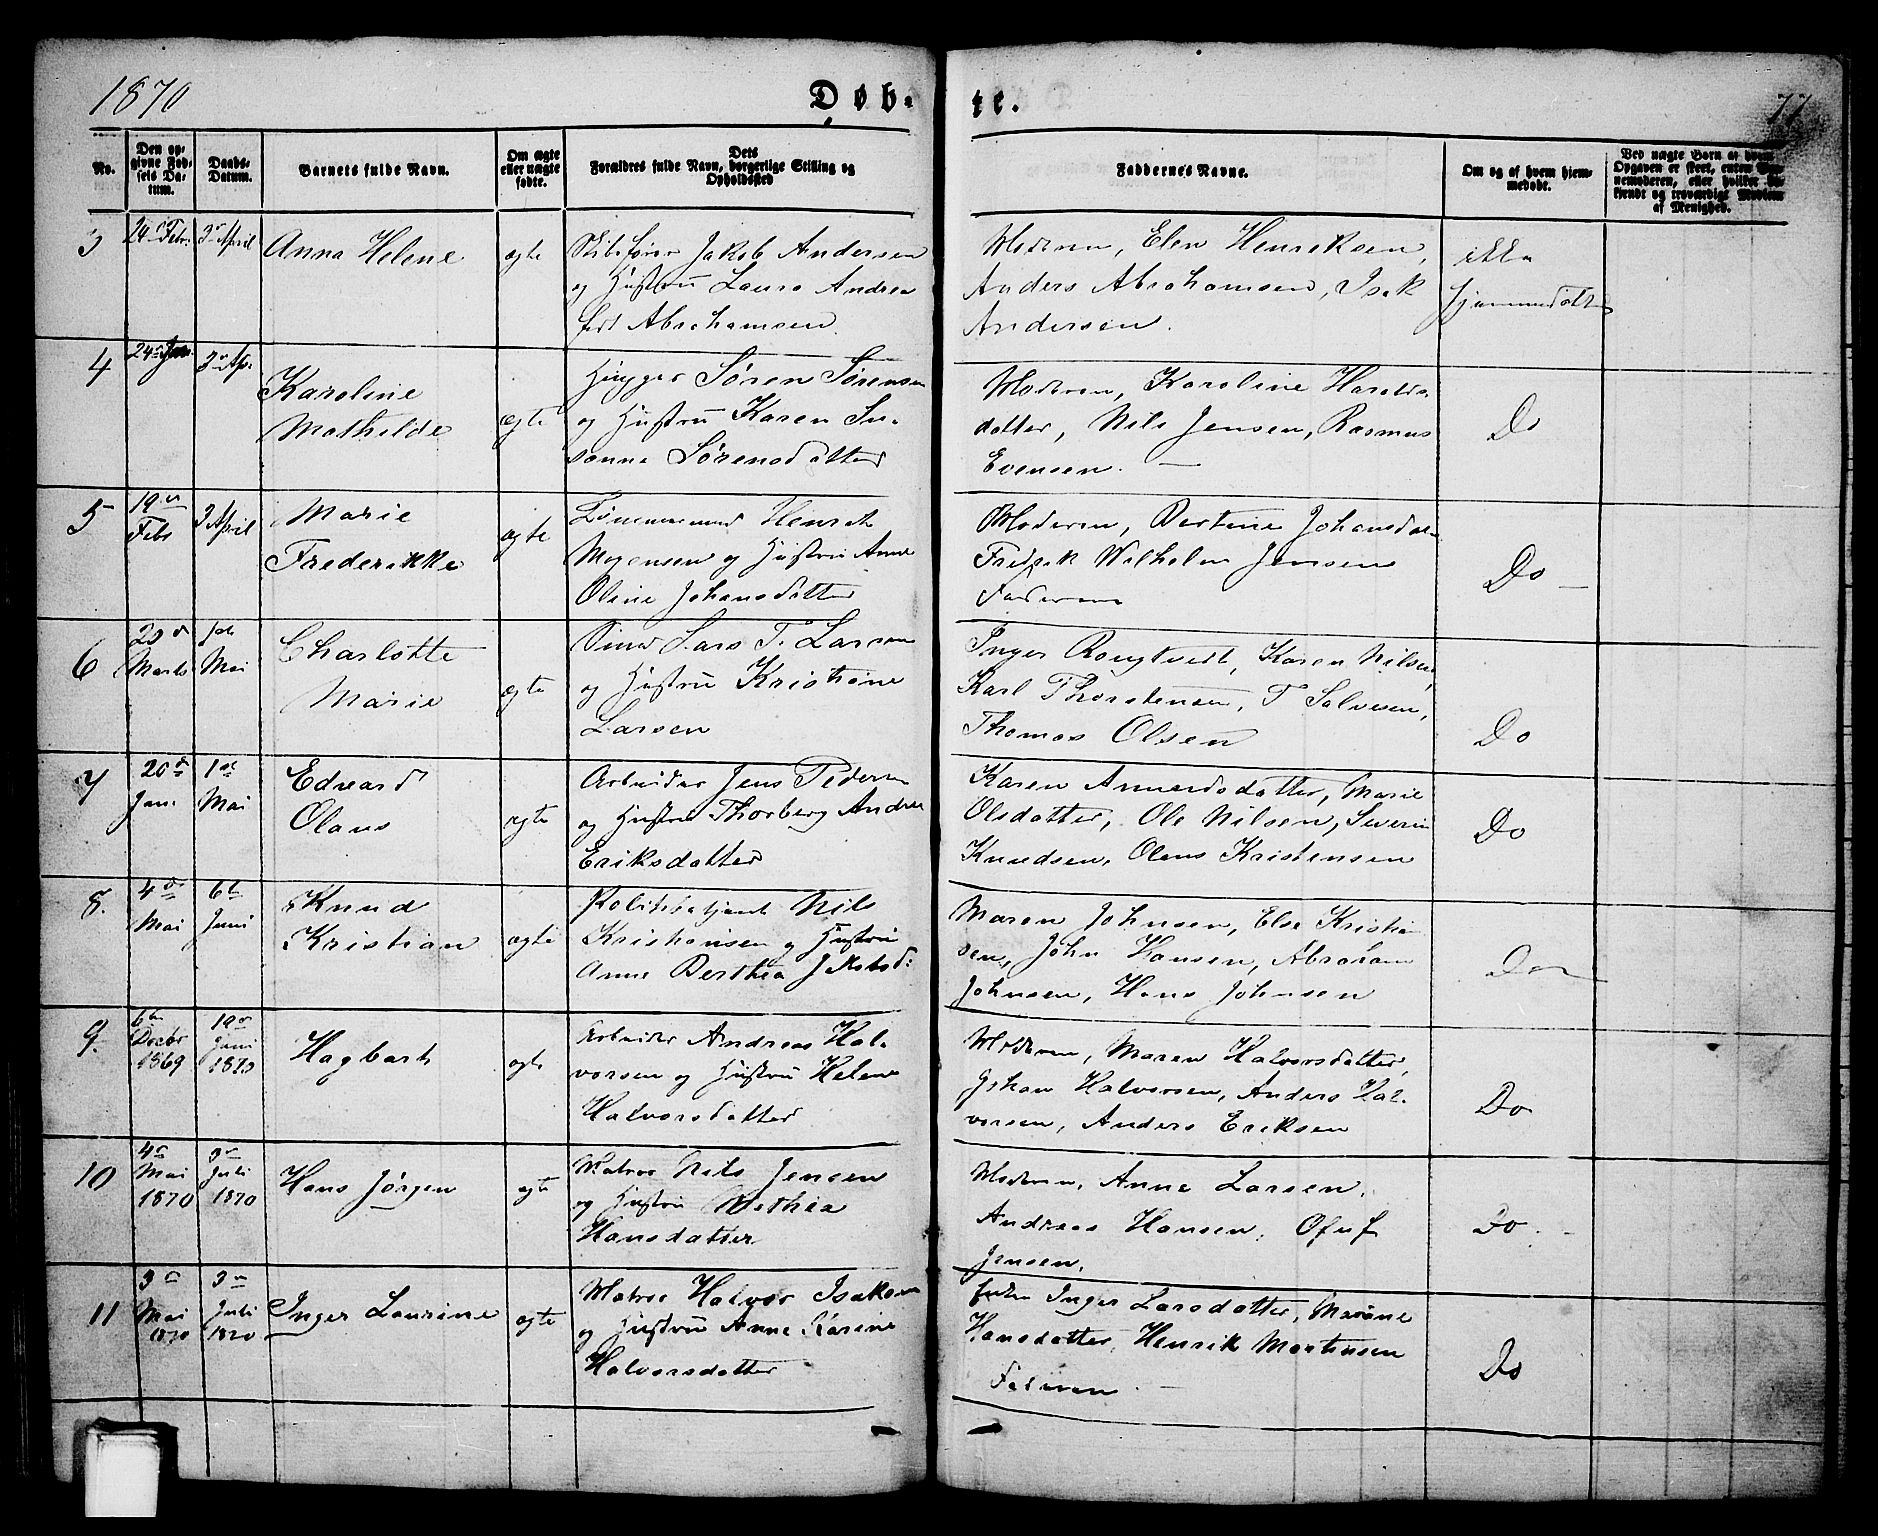 1870
Døb-
te.
77
No.
Den op-
givne Fød-
sels Da-
tum.
Daabs-
Datum.
Barnets fulde Navn.
Om ægte
eller uægte
fødte.
Dets
Forældres fulde Navn, borgerlige Stilling og
Opholdssted
Faddernes Navne.
Om og af hvem hjem-
medøbt.
Ved uægte Børn af hvem
Opgaven er skeet, enten
nemoderen, eller hvilket be-
kjendt og troværdigt Medlem
af Menighed.
3
24de Febr.
3 April
Anna Helene
ægte
Skibsfører Jakob Andersen
og Hustru Laura Andrea
født Abrahamsen.
Moderen, Elen Henriksen,
Anders Abrahamsen, Isak
Andersen.
ikke
hjemmedøbt
4
24 Jan.
3 Ap.
Karoline
Mathilde
ægte
Søren Sørensen
og Hustru Karen Su-
sanne Sørensdatter
Moderen, Karoline Haralds-
datter, Nils Jensen, Rasmus
Evensen. —
Do
5
19de
Feb
3 April
Marie
Frederikke
ægte
Henrik
Mogensen og Hustru Anne
Oline Johansdatter
Moderen, Bertine Johansdat
Fredrik Wilhelm Jensen
Faderen
Do —
6
20de
Marts
1ste
Mai
Charlotte
Marie
ægte
Lars T. Larsen
og Hustru Kristiane
Larsen
Inger Rongtvedt, Karen Nilsen,
Karl Thorstensen, T Salvesen,
Thomas Olsen
Do
7
20de
Jan.
1ste
Mai
Edvard
Olaus
ægte
Arbeider Jens Pedersen
og Hustru Thorberg Andrea
Eriksdatter
Karen Amundsdatter, Marie
Olsdatter, Ole Nilsen, Severin
Knudsen, Olens Kristensen
Do
8.
4de
Mai
6te
Juni
Knud
Kristian
ægte
Politibetjent Nils
Kristiansen og Hustru
Anne Berthea Jakobsd.
Maren Johnsen, Else Kristian
sen, John Hansen, Abraham
Johnsen, Hans Johnsen
Do
9.
6te
Decbr
1869
19de
Juni
1870
Hagbart
ægte
Arbeider Andreas Hal-
vorsen og Hustru Helene
Halvorsdatter
Moderen, Maren Halvorsdatter,
Johan Halvorsen, Anders Hal-
vorsen, Anders Eriksen
Do
10
4de
Mai
1870
3de
Juli
1870
Hans Jørgen
ægte
Matros Nils Jensen
og Hustru Mathea
Hansdatter
Moderen, Anne Larsen,
Andreas Hansen,
Jensen.
Do. —
11
3de
Mai
1870
3de
Juli
1870
Inger Laurine
ægte
Matros Halvor Isaksen
og Hustru Anne Karene
Halvorsdatter
Inger Larsdatter,
Hansdatter, Henrik Mortensen
Faderen —
Do